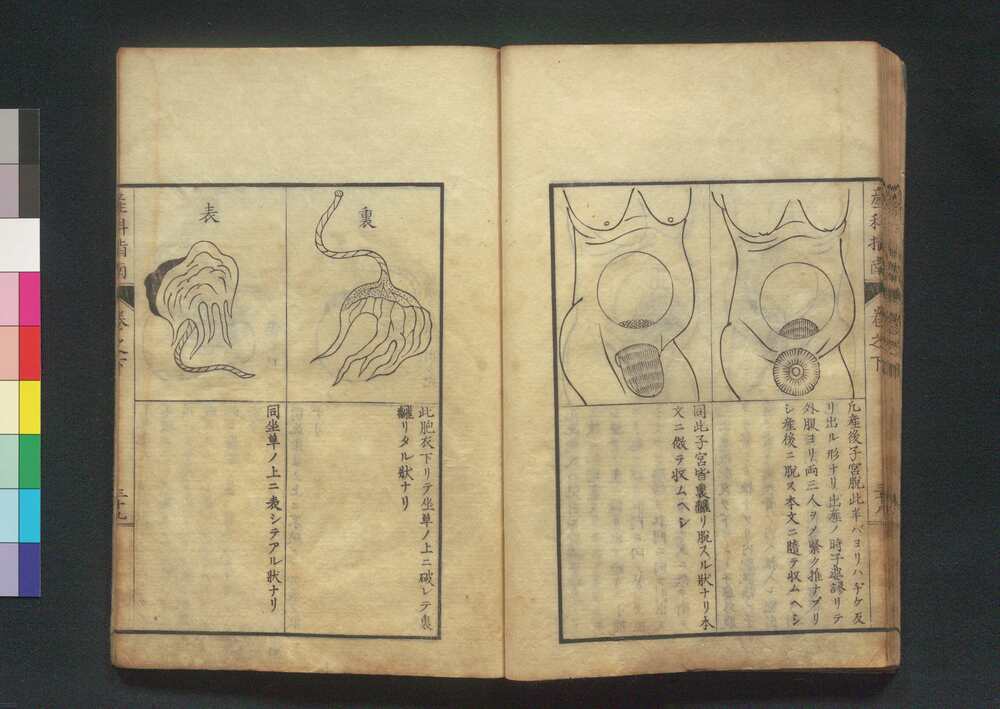 産科指南
巻之下
三十八
凡産後子宮脱此半バヨリハヂケ反
リ出ル形ナリ出産ノ時子
外腹ヨリ両三人ヲメ緊ク推ナブリ
シ産後ニ脱ス本文ニ随テ収ムヘシ
同此子宮皆裏飜リ脱スル状ナリ本
文ニ倣テ収ムヘシ
裏
此胞衣下リテ坐草ノ上ニ破レテ裏
飜リタル状ナリ
表
同坐草ノ上ニ表シテアル状ナリ
産科指南
巻之下
三十九